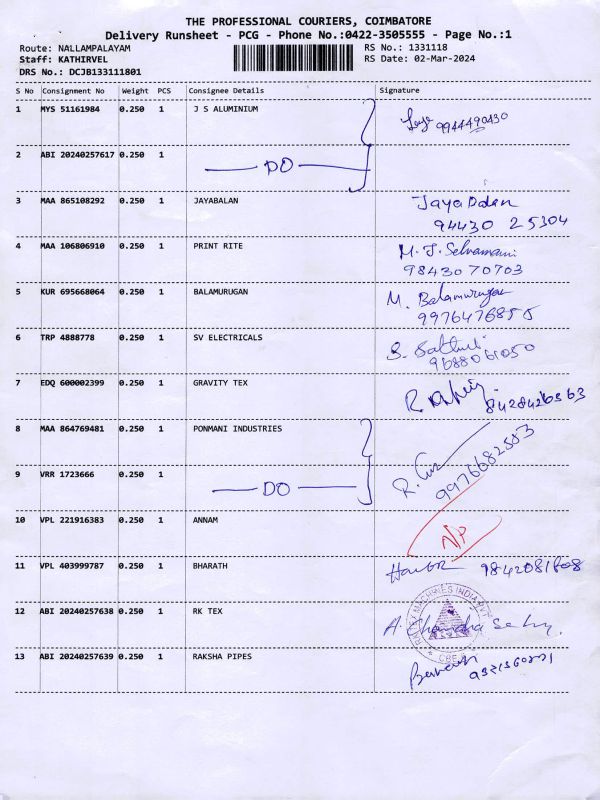 THE PROFESSIONAL COURIERS, COIMBATORE
Delivery Runsheet - PCG - Phone No.:0422-3505555 - Page No.:1
Route: NALLAMPALAYAM RS No.: 1331118
Staff: KATHIRVEL RS Date: 02-Mar-2024
DRS No.: DCJB133111801
S No Consignment No Weight PCS Consignee Details Signature
1 MYS 51161984 0.250 1 J S ALUMINIUM 9944490430
2 ABI 20240257617 0.250 1 DO
3 MAA 865108292 0.250 1 JAYABALAN Jayabalan
94430 25304
4 MAA 106806910 0.250 1 PRINT RITE M. J. Selvamani
98430 70703
5 KUR 695668064 0.250 1 BALAMURUGAN M. Balamurugan
9976476855
6 TRP 4888778 0.250 1 SV ELECTRICALS
9688061050
7 EDQ 600002399 0.250 1 GRAVITY TEX 8428426363
8 MAA 864769481 0.250 1 PONMANI INDUSTRIES
9 VRR 1723666 0.250 1 DO 9976682503
10 VPL 221916383 0.250 1 ANNAM NP
11 VPL 403999787 0.250 1 BHARATH
12 ABI 20240257638 0.250 1 RK TEX
13 ABI 20240257639 0.250 1 RAKSHA PIPES